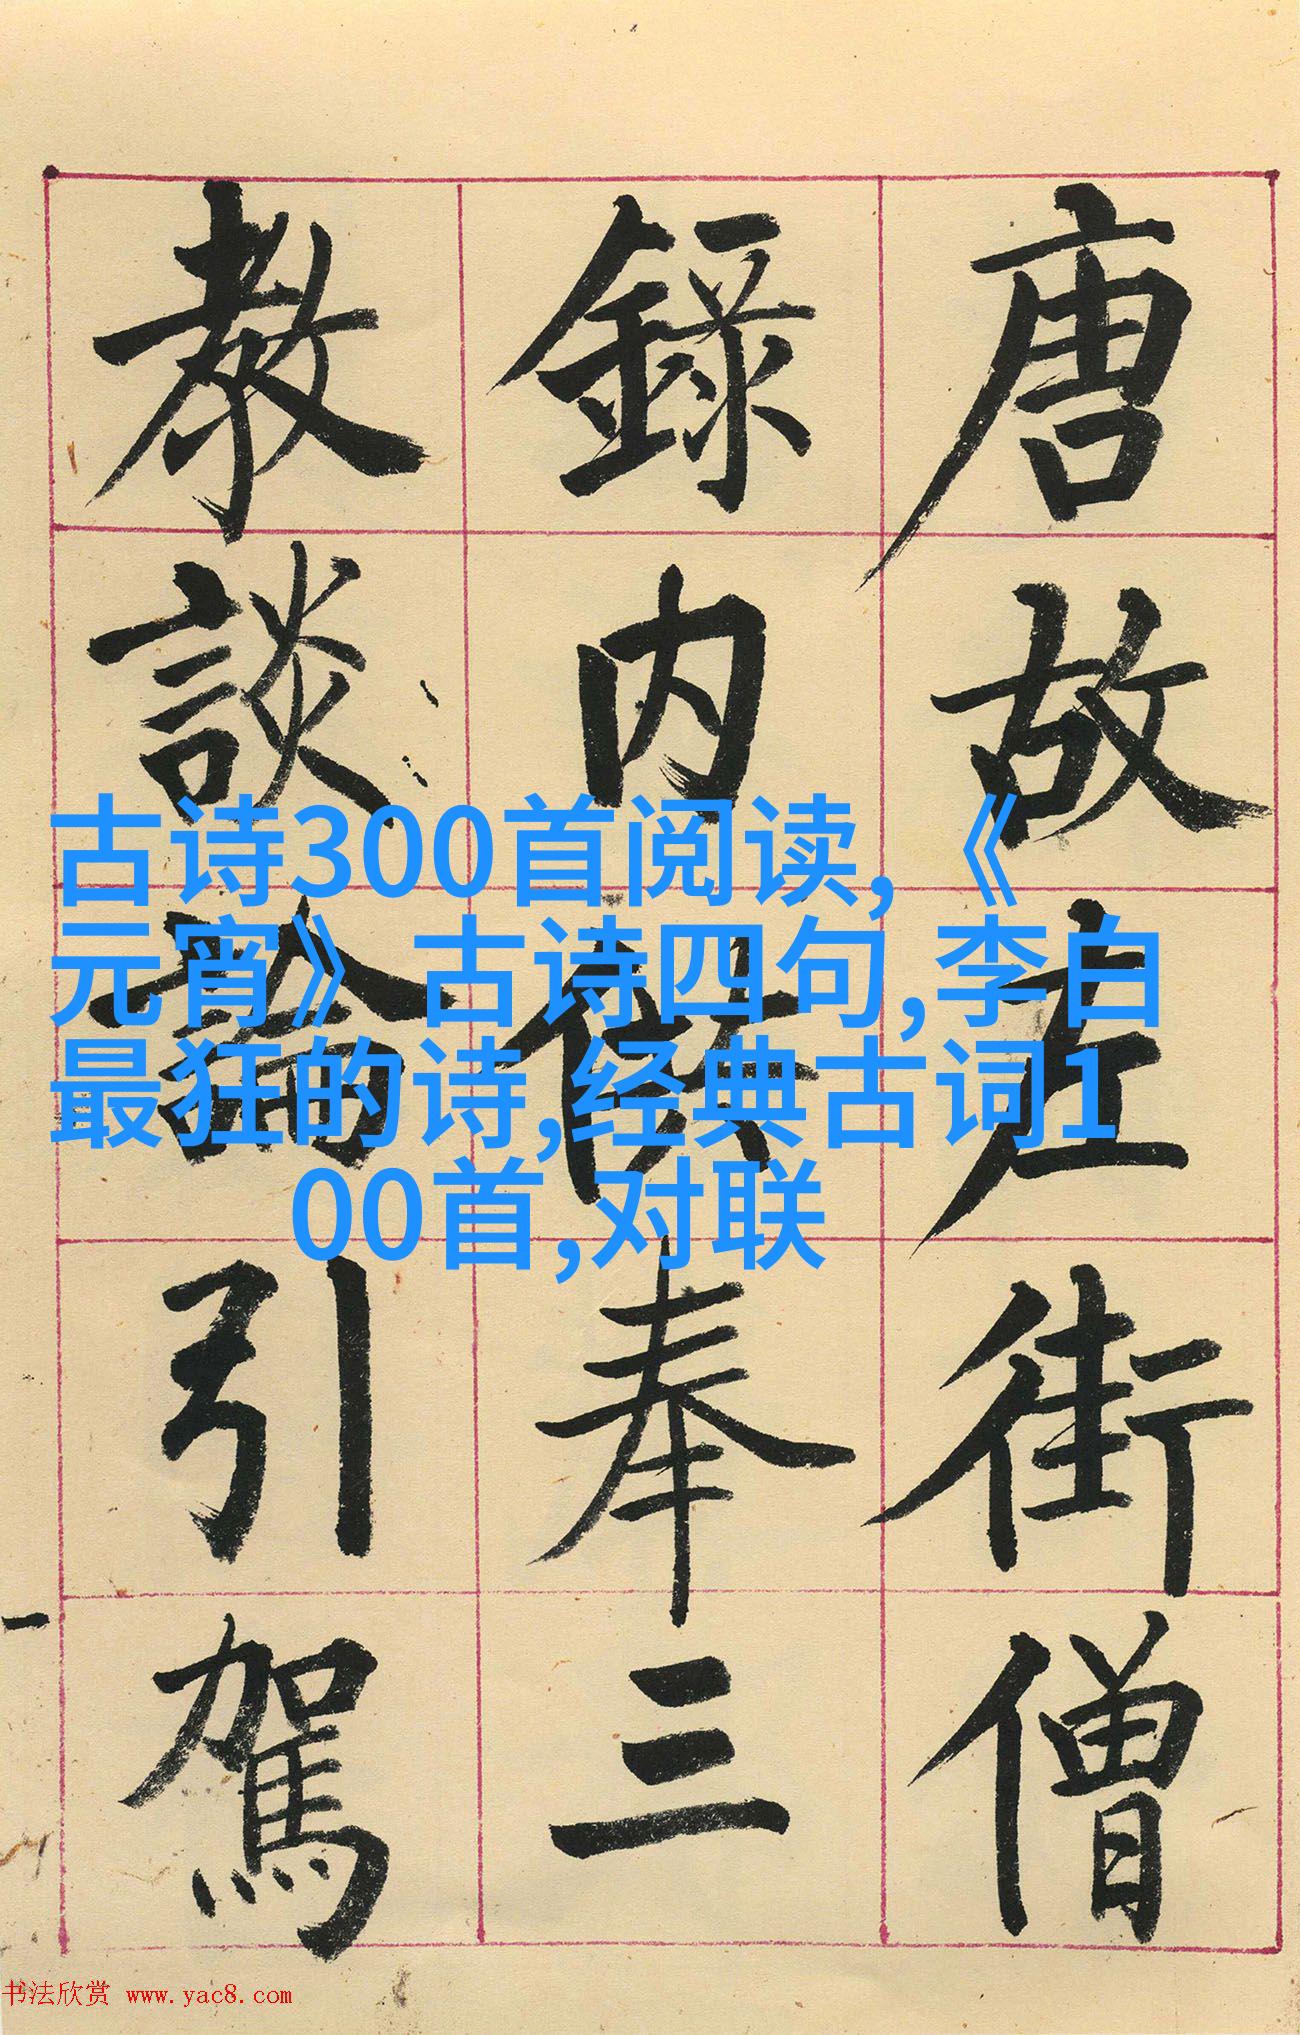 唐故左街僧
錄内供奉三
教談論引駕
古诗300首阅读,《
元宵》古诗四句,李白
最狂的诗,经典古词1
00首,对联
书法欣赏 www.yac8.com